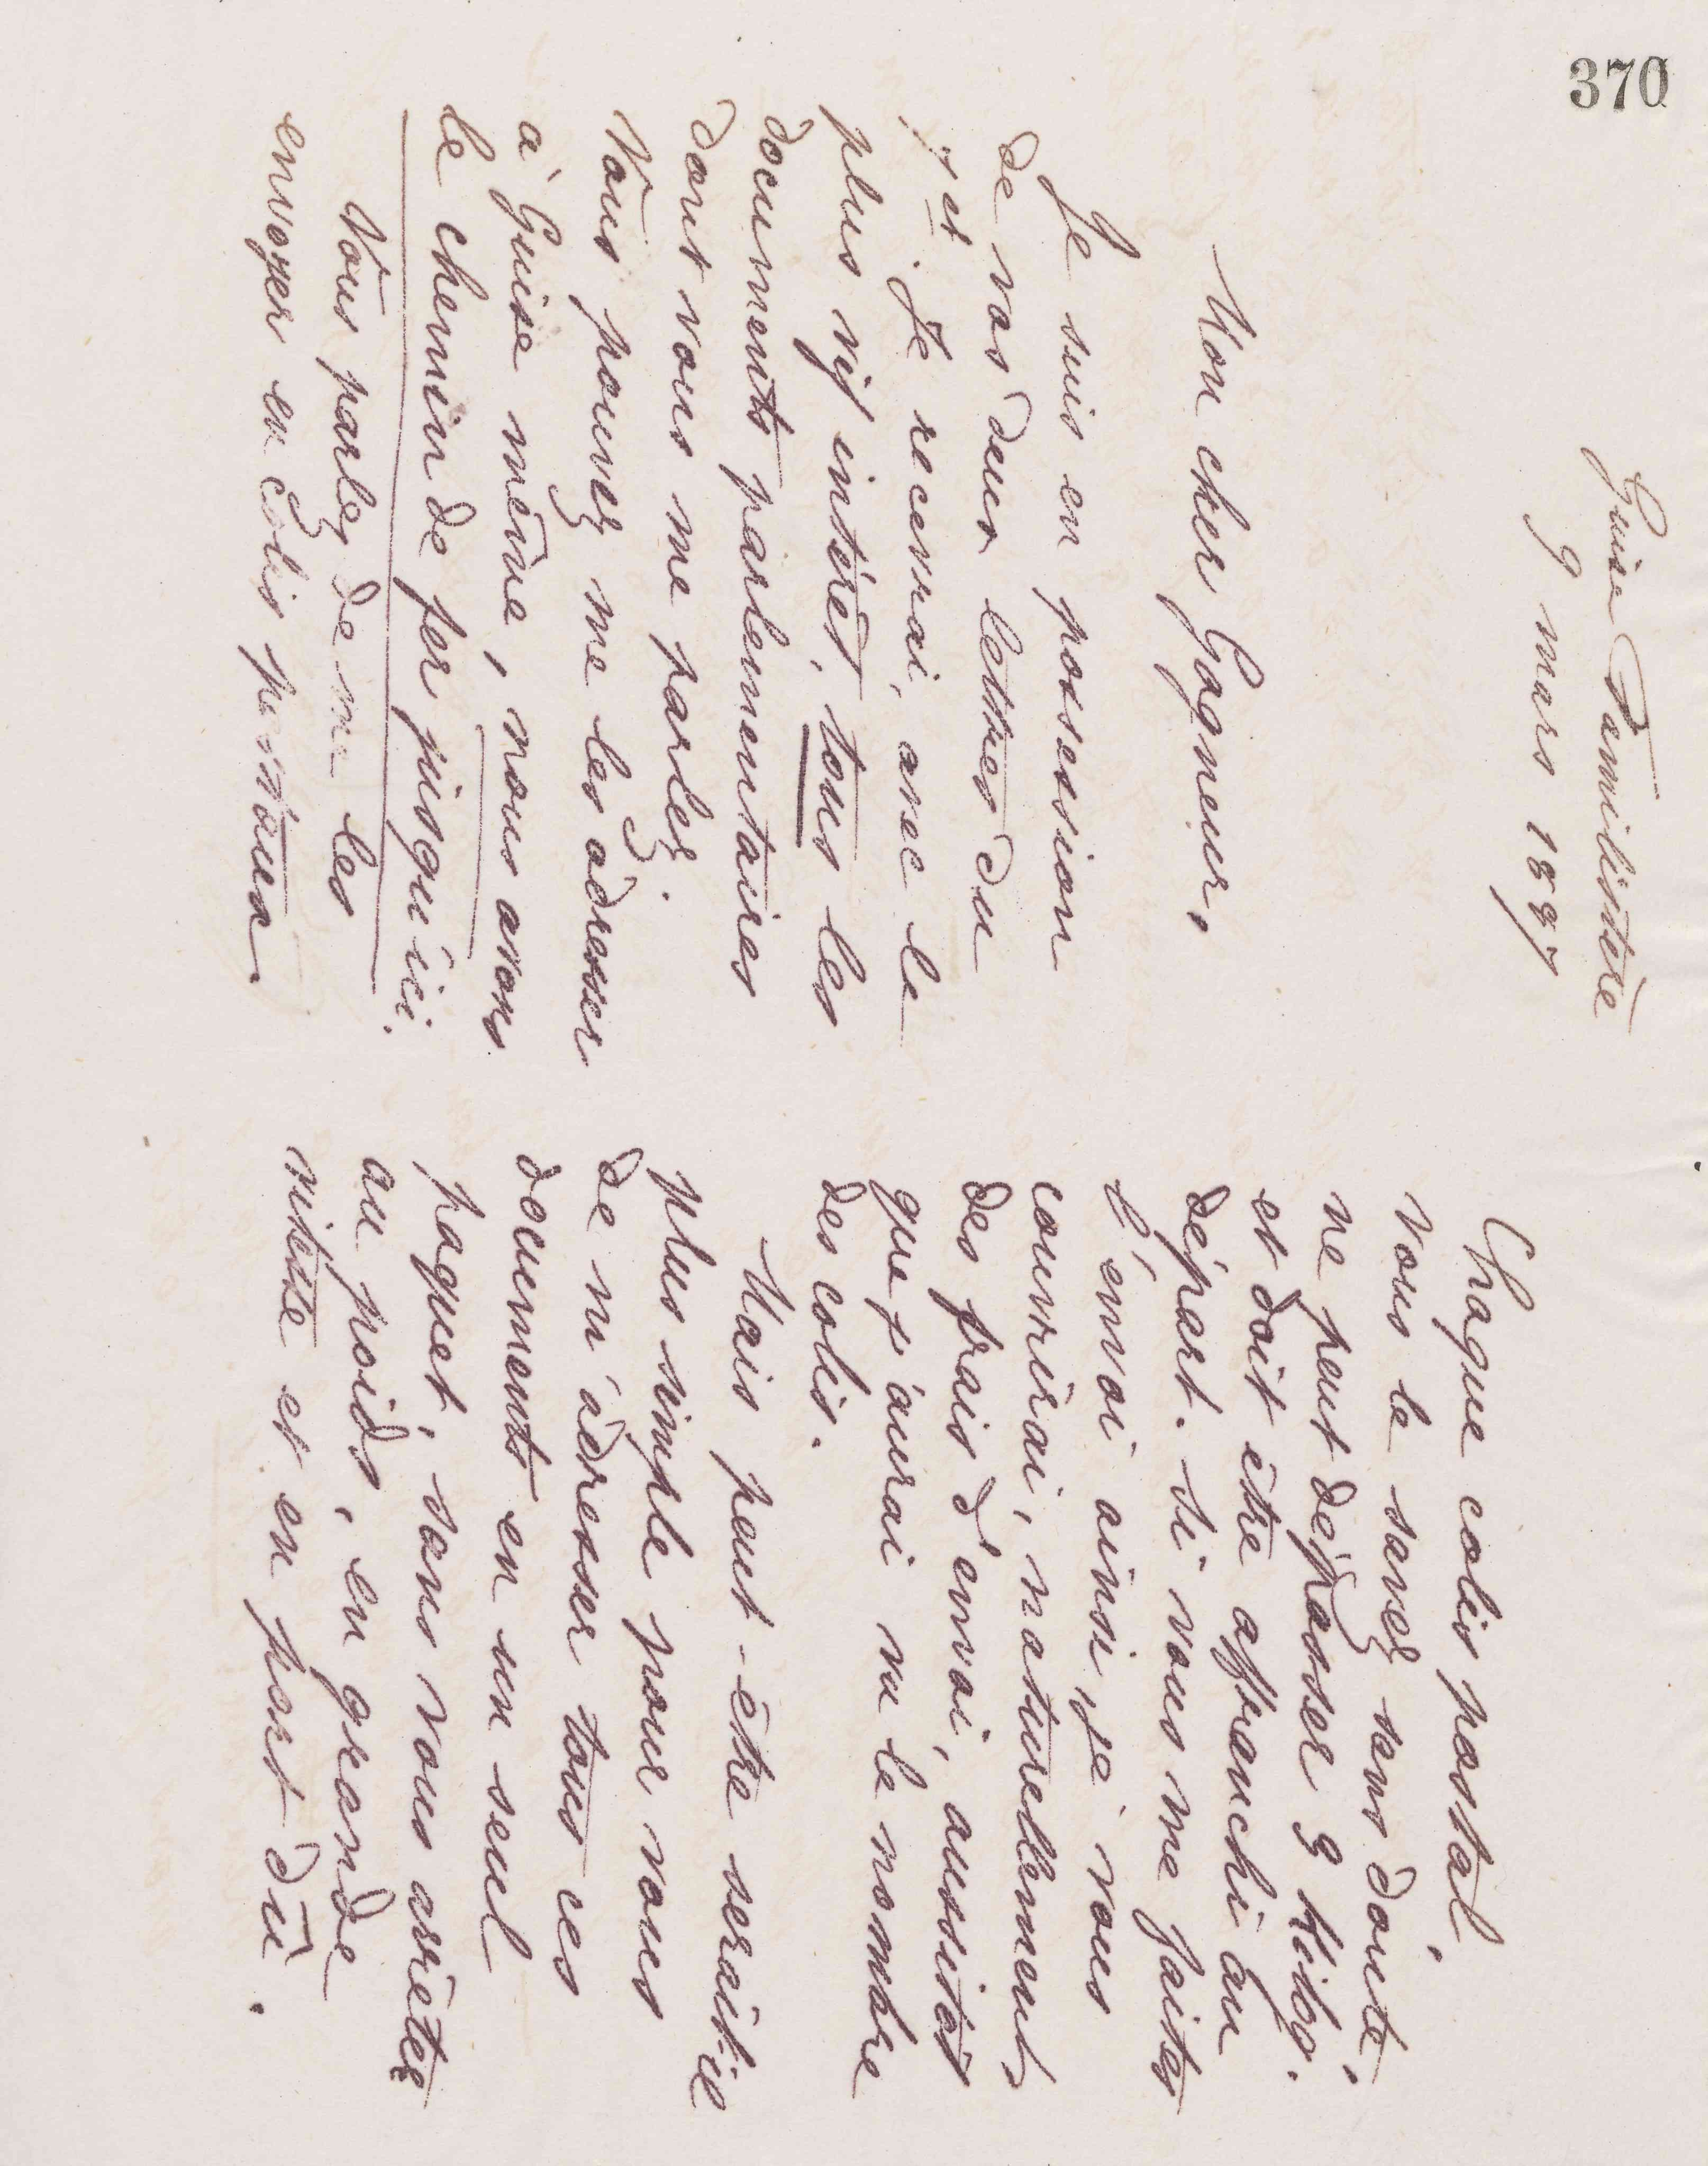 370
Guise Familistère
9 mars 1887
Mon cher Gagneur,
Je suis en possession
de vos deux lettres du
7 et. Je recevrai, avec le
plus vif intérêt, tous les
documents parlementaires
dont vous me parlez.
Vous pouvez me les adresser
à Guise même, nous avons
le chemin de fer jusqu'ici.
Vous parlez de me les
envoyer en colis postaux.
Chaque colis postal,
vous le savez sans doute,
ne peut dépasser 3 Kilog.
et doit être affranchi au
départ. Si vous me faites
l'envoi ainsi, je vous
couvrirai, naturellement,
des frais d'envoi, aussitôt
que j'aurai vu le nombre
des colis.
Mais peut-être serait-il
plus simple pour vous
de m'adresser tous ces
documents en un seul
paquet, sans vous arrêter
au poids, en grande
vitesse et en port dû.